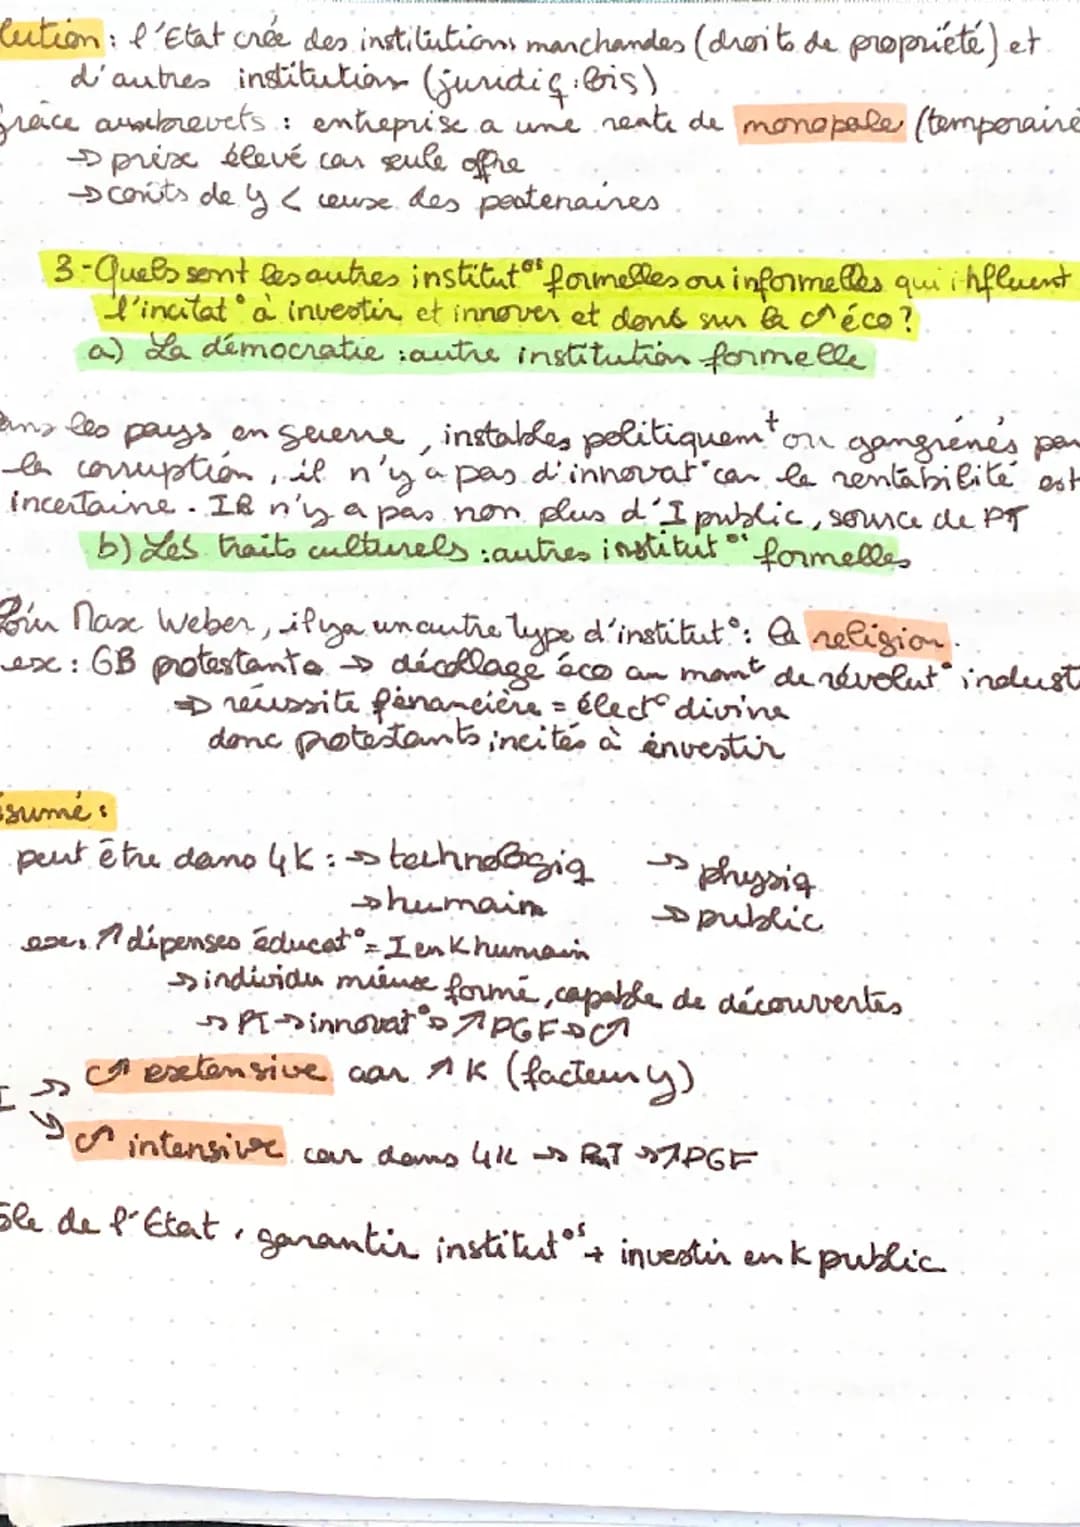 lution : l'Etat crée des institutions marchandes (droits de propriété) et
d'autres institutions (juridiq : lois)
grâce aux brevets : entreprise a une rente de monopole (temporaire
→ prix élevé car seule offre
→ coûts de y < ceux des
3 - Quels sont les autres institut°s formelles ou informelles qui influent
l'incitat° à investir et innover et donc sur la c↗ éco ?
a) La démocratie : autre institution formelle
Dans les pays en guerre, instables politiquem^t ou gangrénés par
la corruption, il n'y a pas d'innovat° car la rentabilité est
incertaine. Il n'y a pas non plus d'I public, source de PT
b) Les traits culturels : autres institut°s formelles
Max Weber, il y a un autre type d'institut° : la religion.
ex : GB protestante → décollage éco au mom^t de révolut° indust
⇒ réussite financière = élect° divine
donc protestants incités à investir
ésumé :
peut être dans 4K : → technologiq → physiq
→ humain → public
ex : ↗ dépenses éducat° = I en K humain
→ individu mieux formé, capable de découvertes
→ PT → innovat° → ↗ PGF → C↗
I → C↗ extensive car ↗ K (facteur y)
↘ C↗ intensive car dans 4K → PT → ↗ PGF
ôle de l'Etat : garantir institut°s + investir en k public